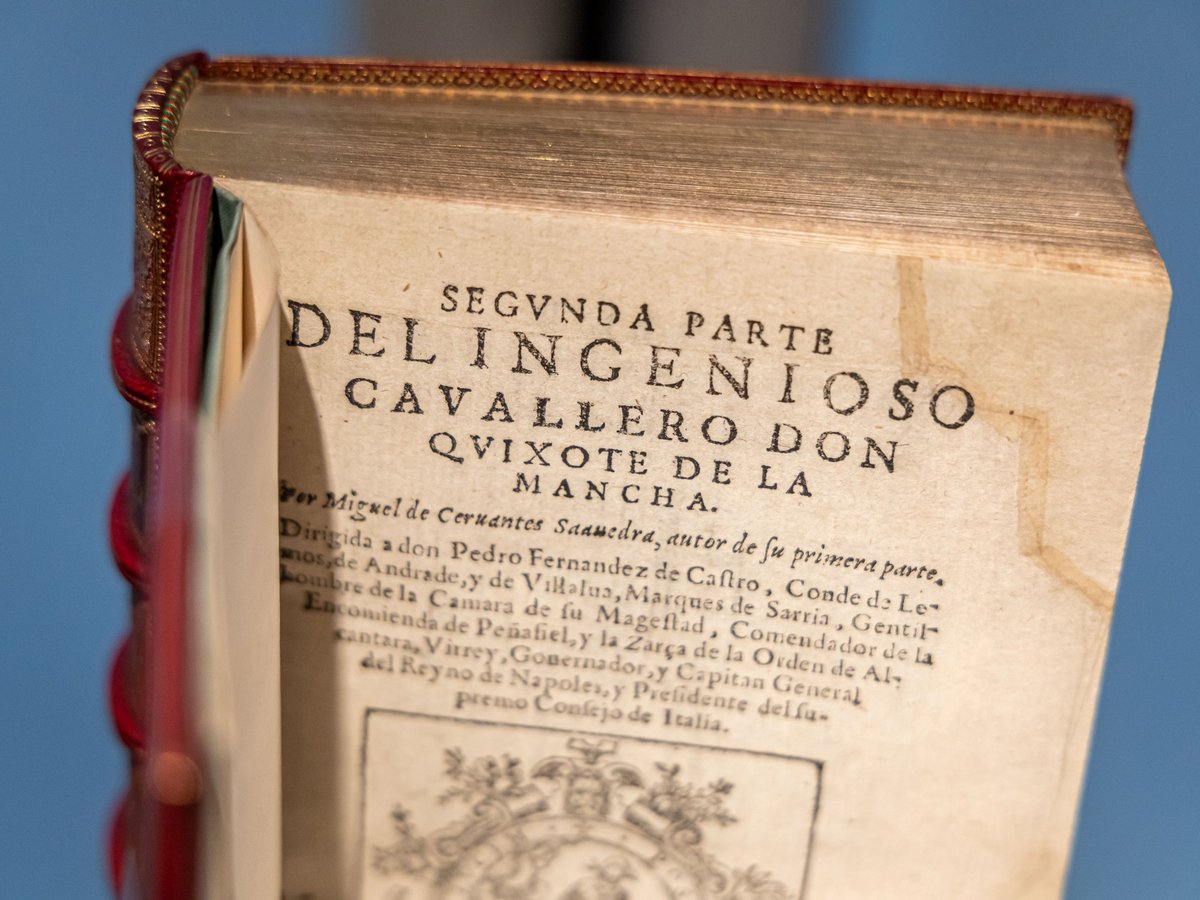 SEGVNDA PARTE
DEL INGENIOSO
CAVALLERO DON
QVIXOTE DE LA
MANCHA.
Por Miguel de Ceruantes Saauedra, autor de ſu primera parte.
Dirigida a don Pedro Fernandez de Caſtro, Conde de Le-
mos, de Andrade, y de Villalua, Marques de Sarria, Gentil-
hombre de la Camara de ſu Mageſtad, Comendador de la
Encomienda de Peñafiel, y la Zarça de la Orden de Al-
cantara, Virrey, Gouernador, y Capitan General
del Reyno de Napoles, y Preſidente del ſu-
premo Conſejo de Italia.